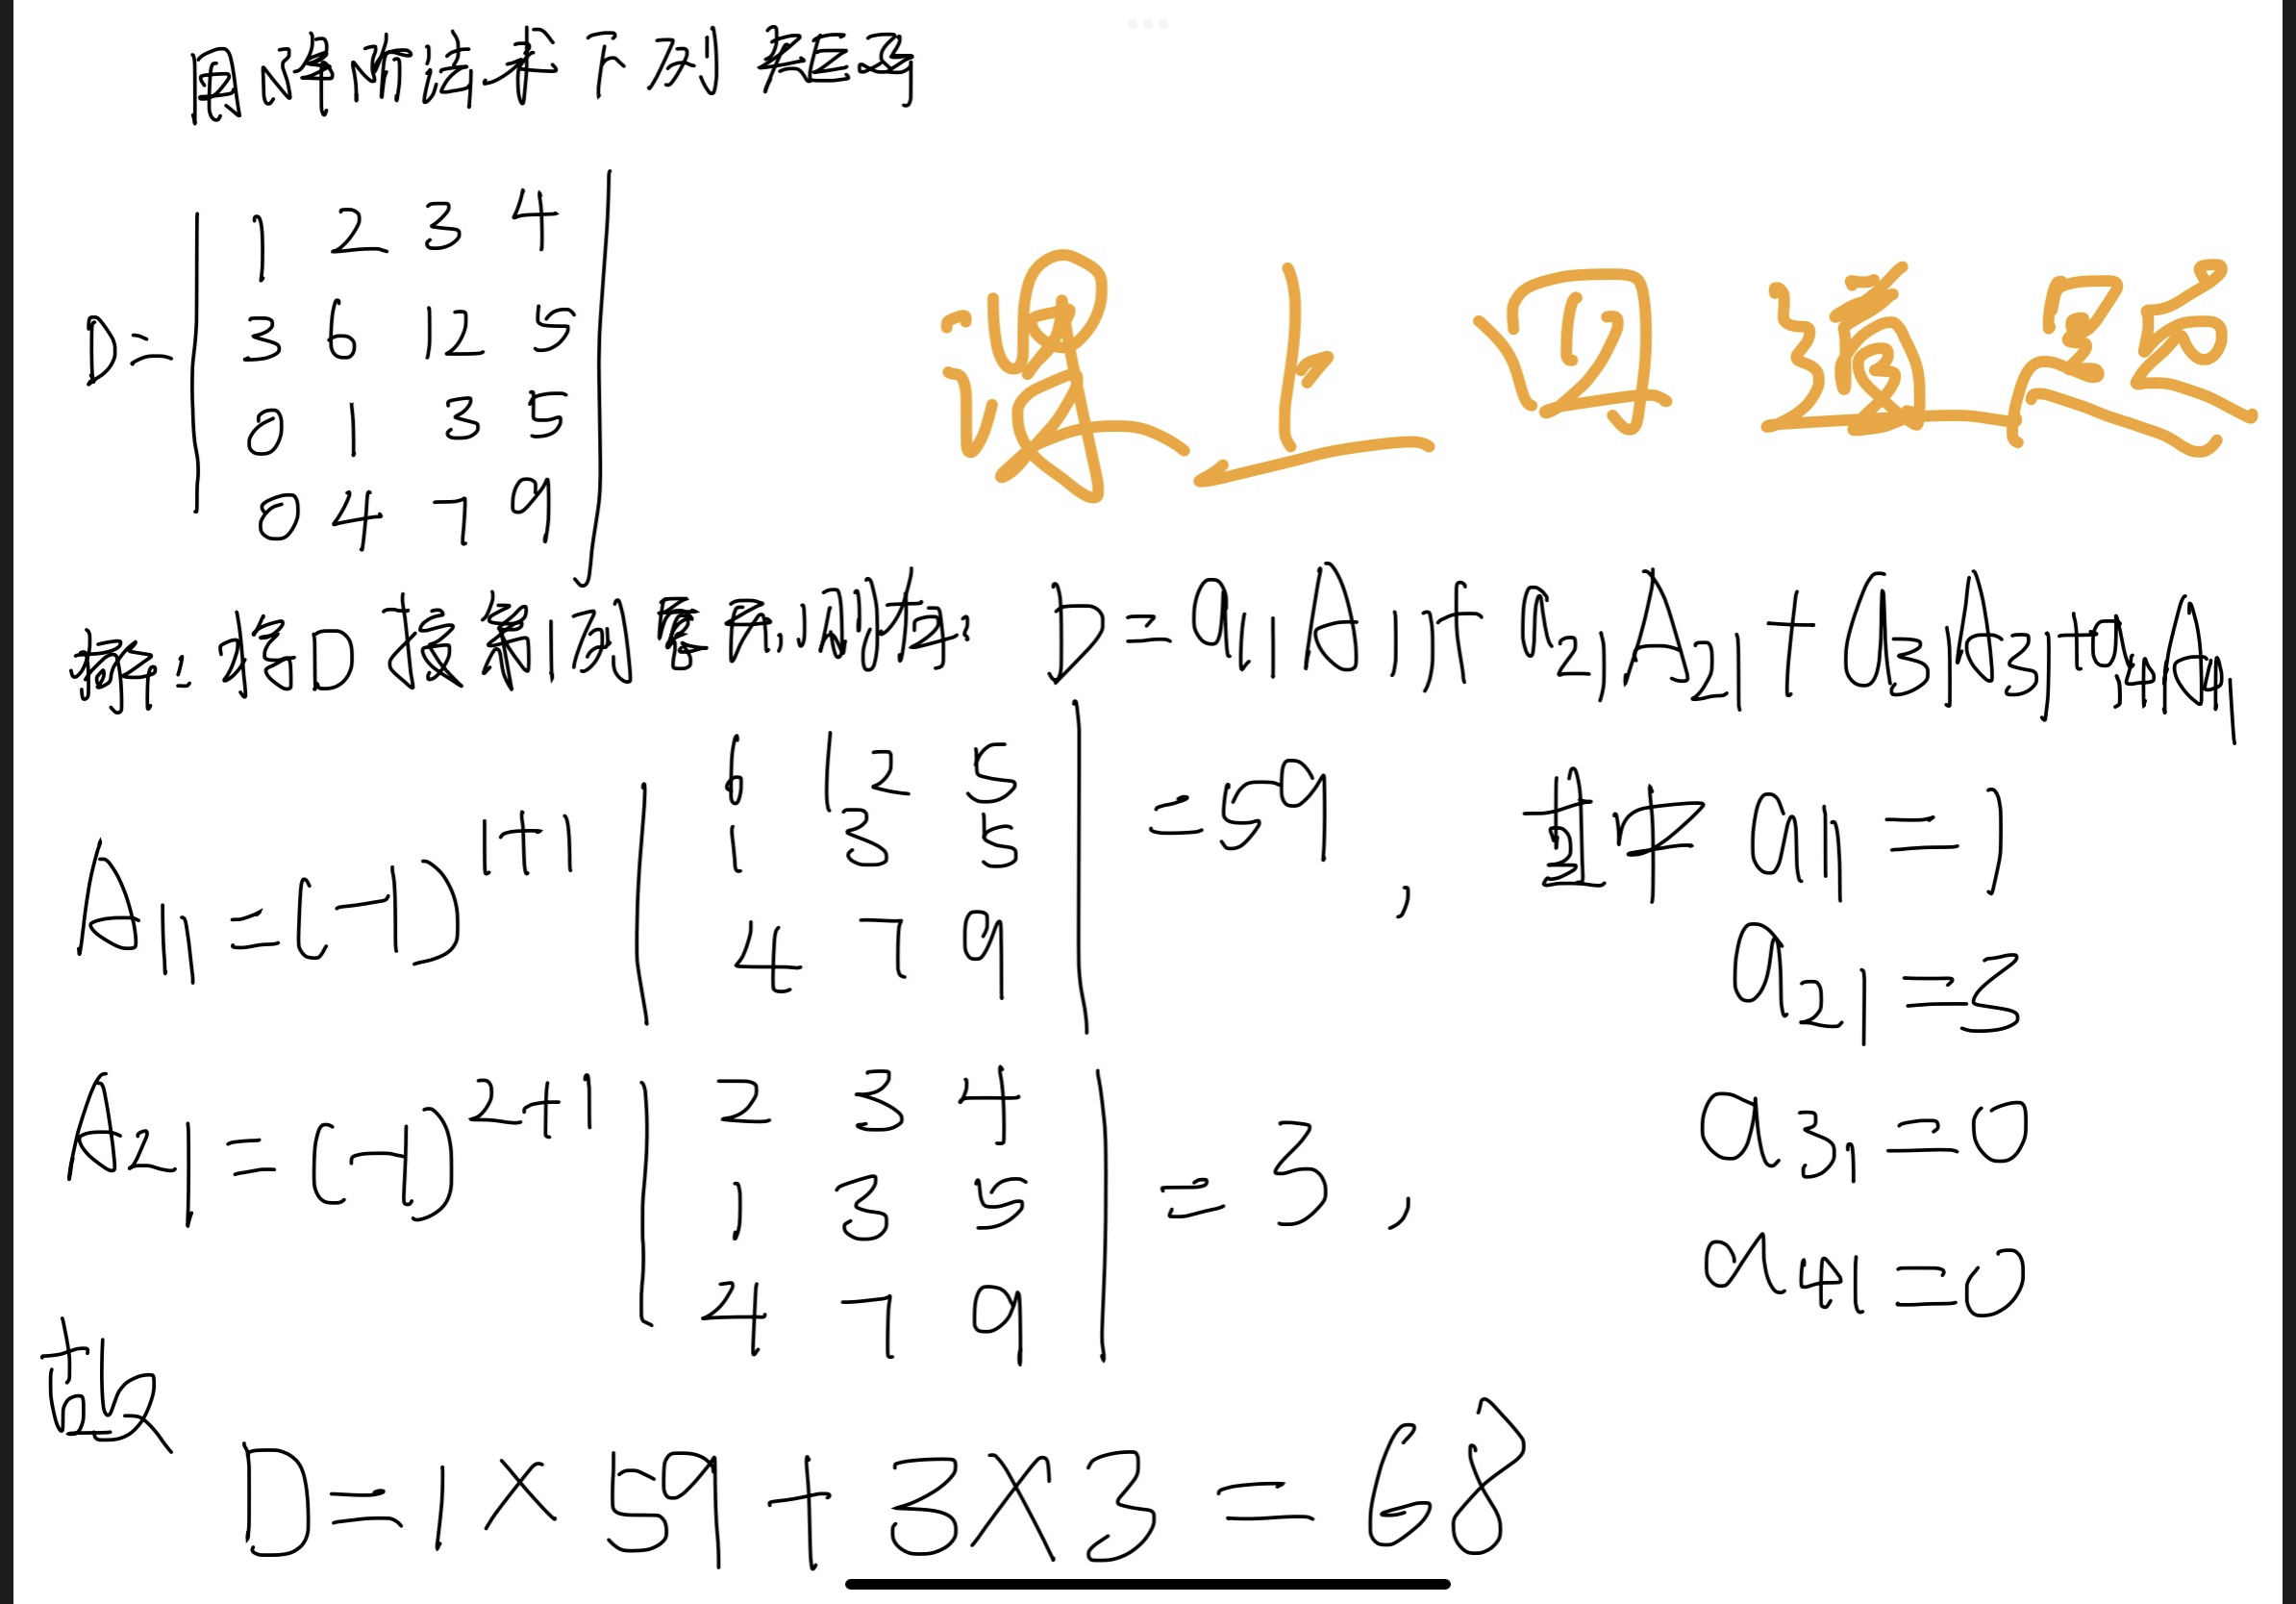 用降阶法求下列矩阵
D= | 1 2 3 4 |
| 3 6 12 5 |
| 0 1 3 5 |
| 0 4 7 9 |
课上四道题
解:将D按第1列展开,则有: D=a₁₁A₁₁+a₂₁A₂₁+a₃₁A₃₁+a₄₁A₄₁
A₁₁=(-1)¹⁺¹ | 6 12 5 | =59, 其中 a₁₁=1
| 1 3 5 |
| 4 7 9 | a₂₁=3
A₂₁=(-1)²⁺¹ | 2 3 4 | =3, a₃₁=0
| 1 3 5 |
| 4 7 9 | a₄₁=0
故
D=1×59+3×3=68